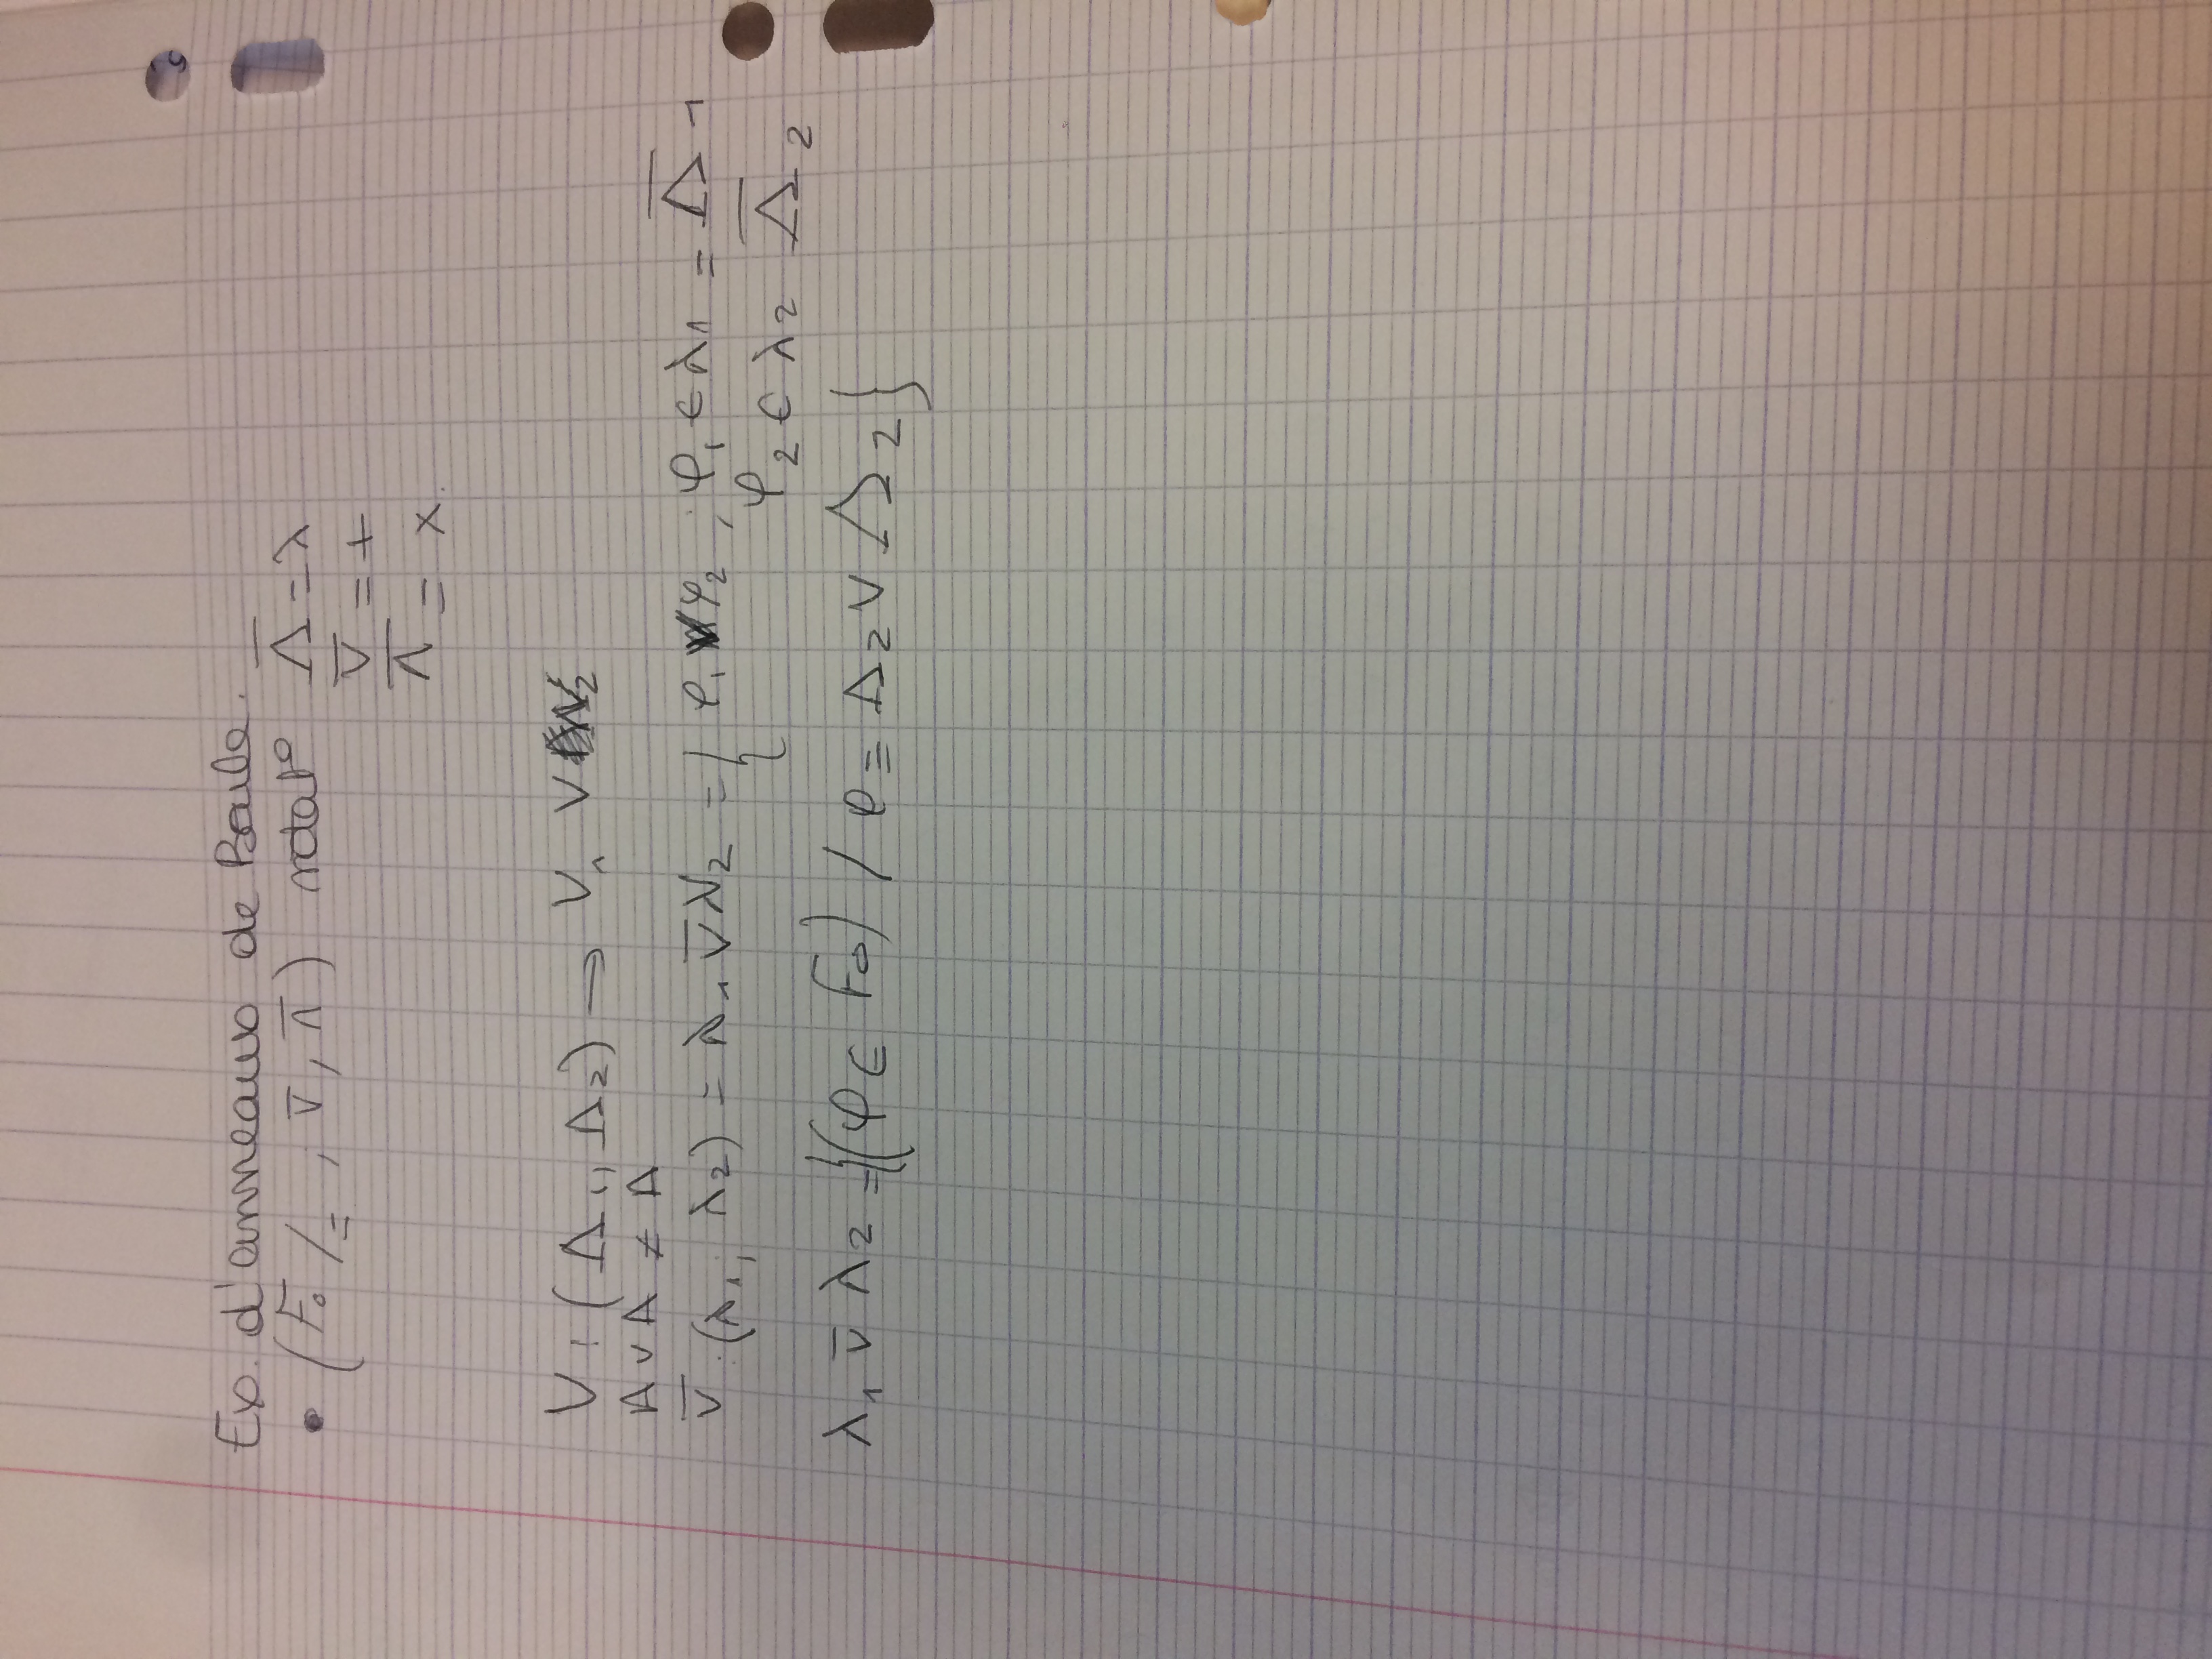 Ex. d'anneaux de Boole.
• (F₀ /≡ , V̅, Λ̅) notat° Δ̅ = λ
V̅ = +
Λ̅ = ×.
V : (Δ₁, Δ₂) → V₁ V V₂
A ∨ A ≠ A
V̅ : (λ₁, λ₂) = λ₁ V̅ λ₂ = { φ₁ V φ₂ ; φ₁ ∈ λ₁ = Δ̅₁
φ₂ ∈ λ₂ Δ̅₂
λ₁ V̅ λ₂ = {(φ ∈ F₀) / φ ≡ Δ₂ V Δ₂}